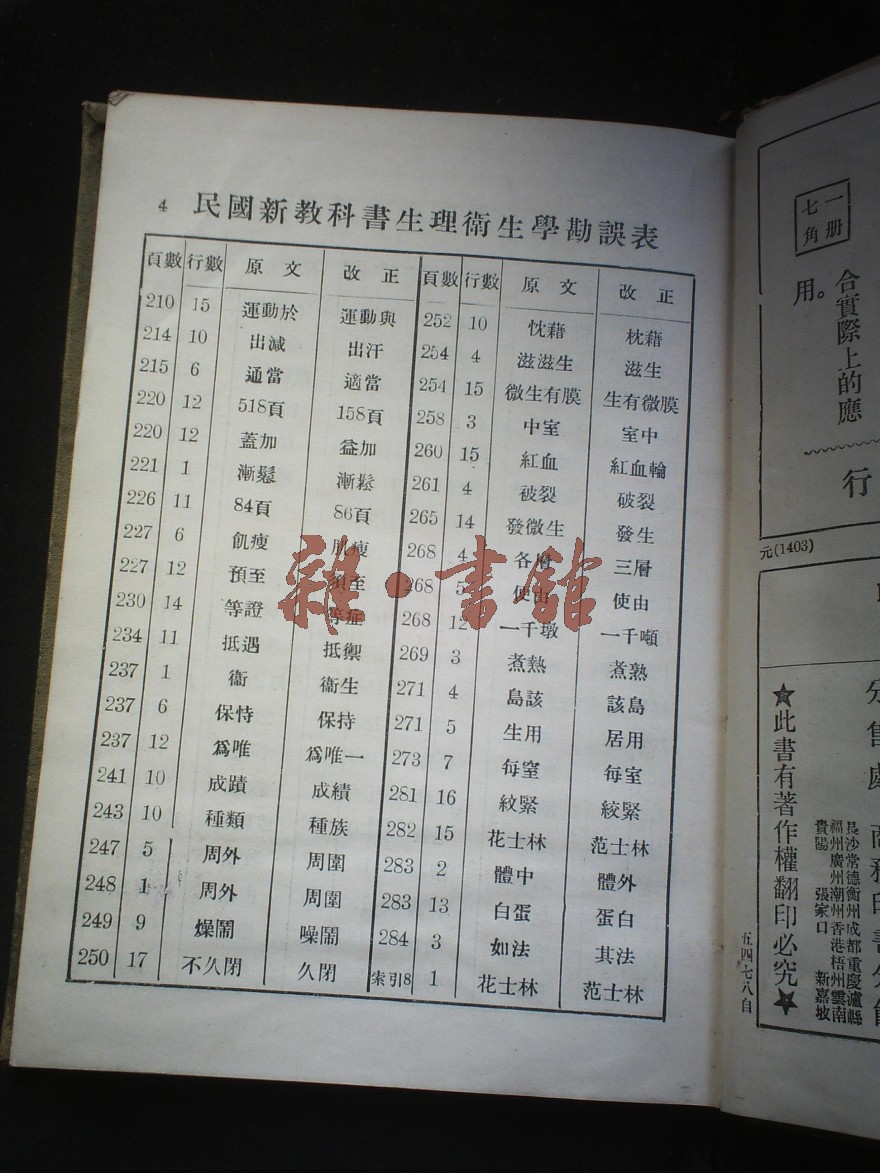 4 民國新教科書生理衛生學勘誤表
頁數 行數 原文 改正 頁數 行數 原文 改正
210 15 運動於 運動與 252 10 忱藉 枕藉
214 10 出減 出汗 254 4 滋滋生 滋生
215 6 通當 適當 254 15 微生有膜 生有微膜
220 12 518頁 158頁 258 3 中室 室中
220 12 蓋加 益加 260 15 紅血 紅血輪
221 1 漸鬆 漸鬆 261 4 被裂 破裂
226 11 84頁 86頁 265 14 發微生 發生
227 6 飢瘦 肌瘦 268 4 各層 三層
227 12 預至 須至 268 5 使由 使由
230 14 等證 等症 268 12 一千墩 一千噸
234 11 抵遇 抵禦 269 3 煮熱 煮熟
237 1 衞 衞生 271 4 島該 該島
237 6 保恃 保持 271 5 生用 居用
237 12 爲唯 爲唯一 273 7 每窒 每室
241 10 成蹟 成績 281 16 紋緊 絞緊
243 10 種類 種族 282 15 花士林 范士林
247 5 周外 周圍 283 2 體中 體外
248 1 周外 周圍 283 13 白蛋 蛋白
249 9 燥鬧 噪鬧 284 3 如法 其法
250 17 不久閉 久閉 索引8 1 花士林 范士林
雜·書館
一册
七角
合實際上的應
用。
行
元(1403)
分售處
長沙常德衡州成都重慶瀘縣
福州廣州潮州香港梧州雲南
貴陽 張家口 新嘉坡
★此書有著作權翻印必究★
五四七八自